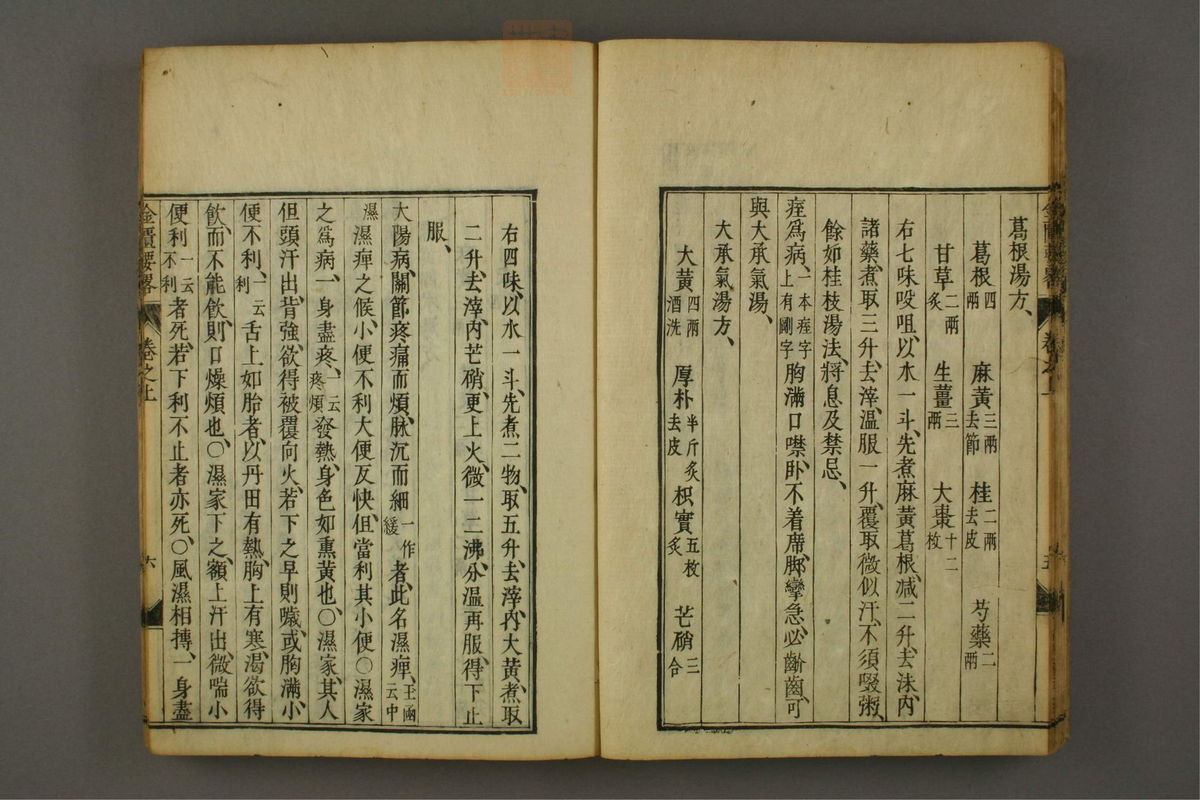 葛根湯方、
葛根四兩 麻黃三兩去節 桂二兩去皮 芍藥二兩
甘草二兩炙 生薑三兩 大棗十二枚
右七味㕮咀、以水一斗、先煮麻黃葛根、減二升、去沫、內
諸藥、煮取三升、去滓、溫服一升、覆取微似汗、不須啜粥、
餘如桂枝湯法、將息及禁忌、
痓爲病、一本痓字上有剛字胸滿口噤、臥不着席、脚攣急、必齘齒、可
與大承氣湯、
大承氣湯方、
大黃四兩酒洗 厚朴半斤炙去皮 枳實五枚炙 芒硝三合
右四味、以水一斗、先煮二物、取五升、去滓、內大黃、煮取
二升、去滓、內芒硝、更上火、微一二沸、分溫再服、得下止
服、
太陽病、關節疼痛而煩、脉沉而細一作緩者、此名濕痺、玉函云中
濕濕痺之候、小便不利、大便反快、但當利其小便〇濕家
之爲病、一身盡疼、一云疼煩發熱、身色如熏黃也、〇濕家、其人
但頭汗出、背強、欲得被覆向火、若下之早則噦、或胸滿、小
便不利、一云利舌上如胎者、以丹田有熱、胸上有寒、渴欲得
飲、而不能飲、則口燥煩也、〇濕家下之、額上汗出、微喘、小
便利一云不利者死、若下利不止者亦死、〇風濕相搏、一身盡
金匱要畧 卷之上 六